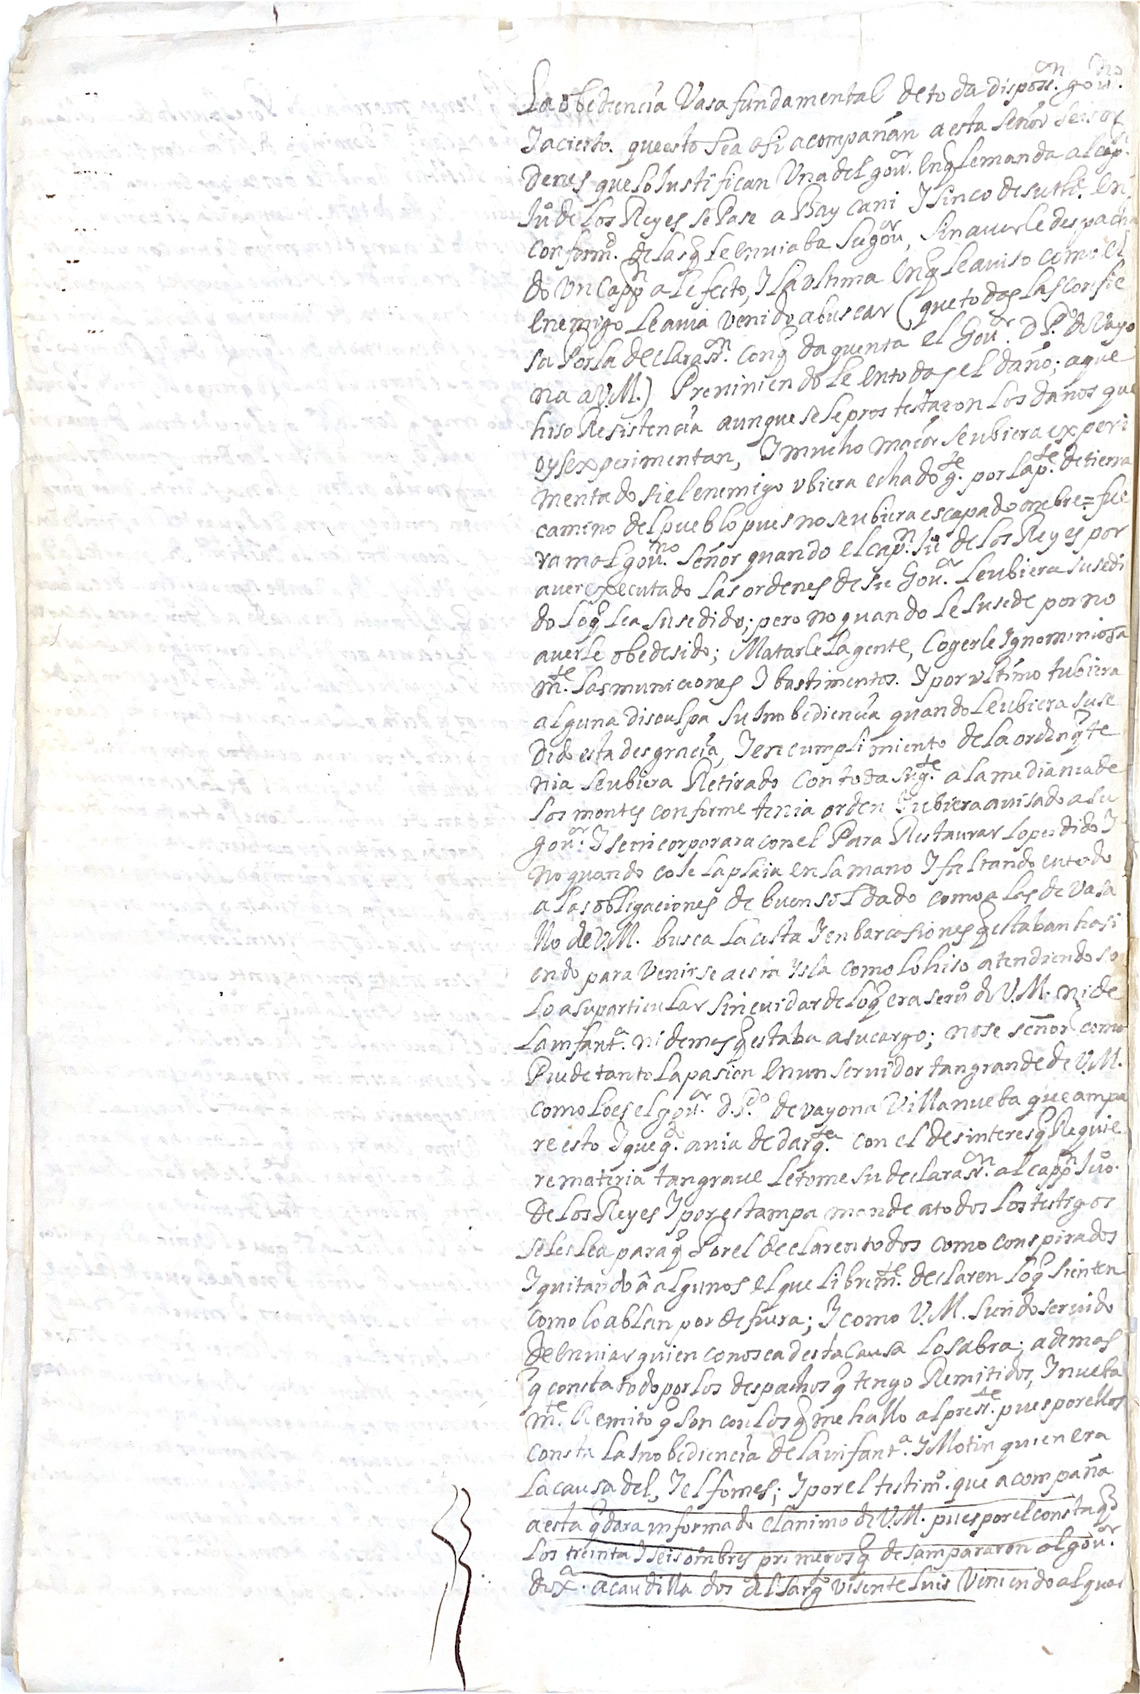 La obediencia Vasa fundamental de toda disposs.on gou.no
I acierto. que esto sea asi acompañan a esta señor seis or
denes que lo Justifican Una del gou.or en q le manda al cap.n
Ju.o de los Reyes se Pase a Baycani I sinco de su th.e en
conform.d de las q le enuiaba su gou.or, sin auerle despacha
do un Capp.n al efecto, I la ultima en q le auiso como el
enemigo le auia venido a buscar (que todas las confie
sa Por la declaras.on con q da quenta el Gou.or D. P.o de Vayo
na a V.M.) Preuiniendole en todas el daño; a que
hiso Resistencia aunque se le prostestaron los daños que
oy se xperimentan, I mucho maior se ubiera experi
mentado si el enemigo ubiera echado g.te por la p.te de tierra
camino del pueblo pues no se ubiera escapado ombre = fue
ra mal gou.no Señor quando el cap.n Ju.o de los Reyes por
auer executado las ordenes de su Gou.or le ubiera susedi
do lo q le a susedido; pero no quando le susede por no
auerle obedesido; Matarle la gente, Cogerle Ignominiosa
m.te las municiones I bastimentos. I por ultimo tubiera
alguna disculpa su Inobediencia quando le ubiera suse
dido esta desgracia, I en cumplimiento de la orden q te
nia se ubiera Retirado con toda su g.te a la mediania de
los montes conforme tenia orden I ubiera auisado a su
gou.or I se incorporara con el Para Restaurar lo perdido I
no quando coje la plaia en la mano I faltando en todo
a las obligaciones de buen soldado como a las de vasa
llo de V.M. busca la costa I enbarcasiones q estaban hasi
endo para venirse a esta Ysla como lo hiso atendiendo so
lo a su particular sin cuidar de lo q era seru.o de V.M. ni de
la infant.a ni demas q estaba a su cargo; no se señor como
Puede tanto la pasion en un seruidor tan grande de V.M.
como lo es el gou.or d. P.do de vayona Villanueba que ampa
re esto I que q.do auia de dar q.ta con el desinteres q Requie
re materia tan graue le tome su declaras.on al capp.n Ju.o
de los Reyes I por estampa mande a todos los testigos
se les lea para q Por el declaren todos como conspirados
I quitando â algunos el que librem.te declaren lo q sienten
como lo ablan por de fuera; I como V.M. siendo seruido
de enuiar quien conosca desta causa lo sabra; ademas
q consta todo por los despachos q tengo Remitidos, I nueba
m.te Remito q son con los q me hallo al press.te pues por ellos
consta la Inobediencia de la infant.a I Motin quien era
la causa del, I el fomes; I por el testim.o que acompaña
a esta q dara informado el animo de V.M. pues por el consta q
los treinta I seis ombres primeros q desampararon al gou.or
de x.a acaudillados del sarg.to Visente Luis Viniendo al quar